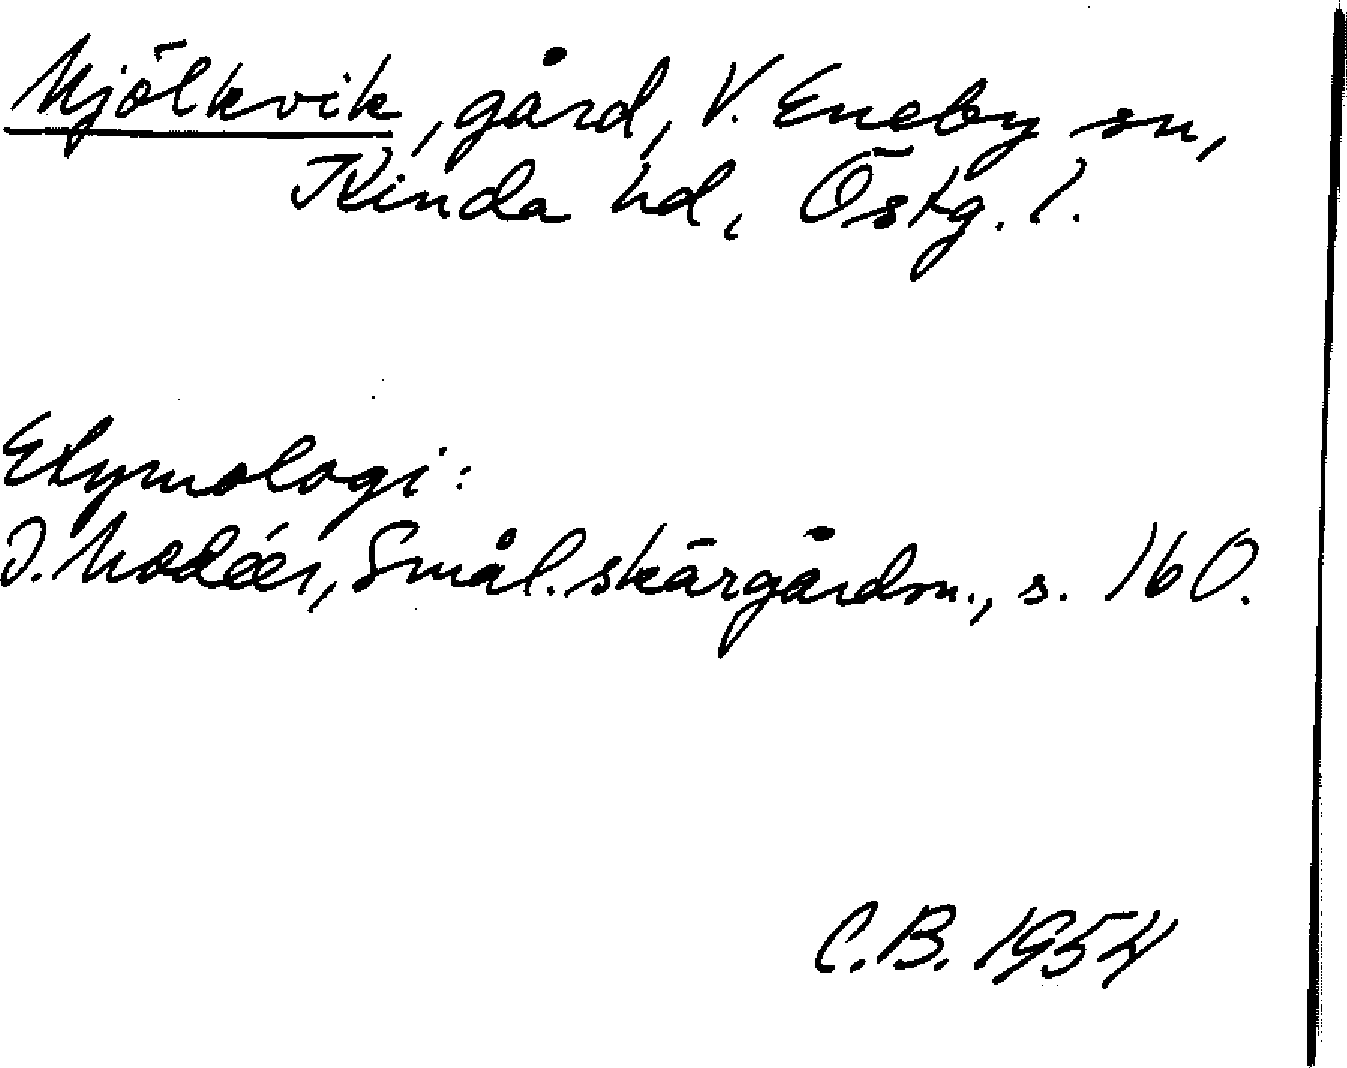 Mjölkvik, gård, V. Eneby sn,
Kinda hd, Östg. l.
Etymologi:
I. Modéer, Smål. skärgårdsn., s. 160.
C.B. 1954